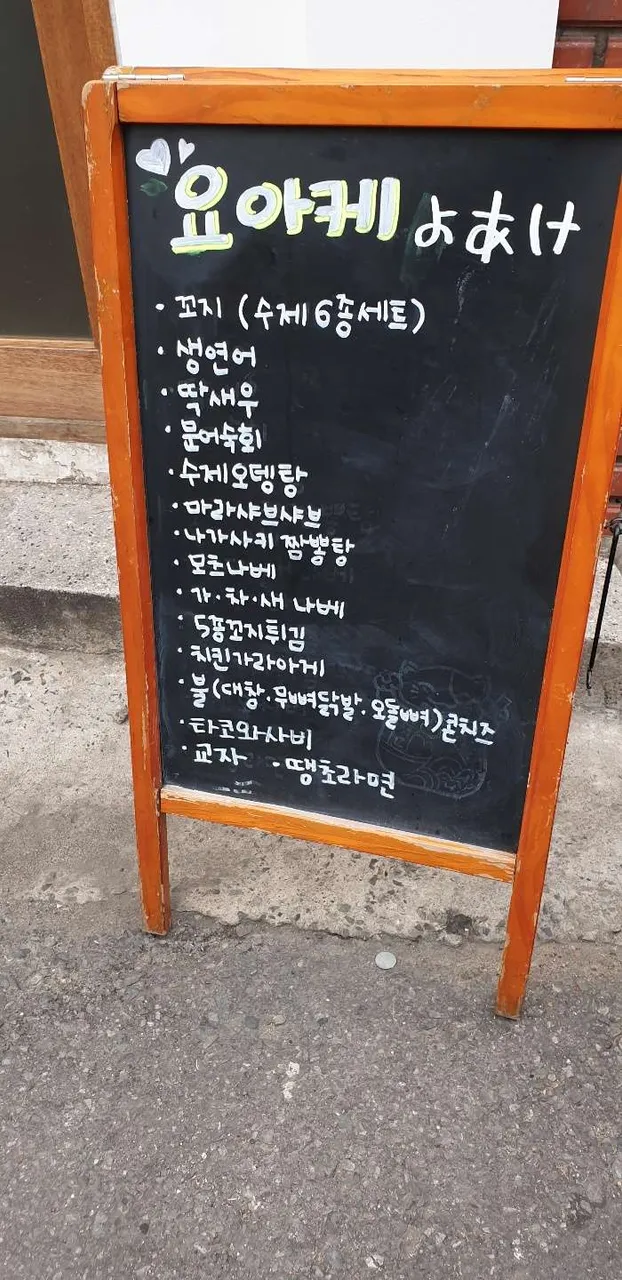 요아케 よあけ
· 꼬지 (수제 6종세트)
· 생연어
· 딱새우
· 문어숙회
· 수제오뎅탕
· 마라샤브샤브
· 나가사키 짬뽕탕
· 모츠나베
· 가·차·새 나베
· 5종꼬지튀김
· 치킨가라아게
· 불(대창·무뼈닭발·오돌뼈)콘치즈
· 타코와사비
· 교자 · 땡초라면